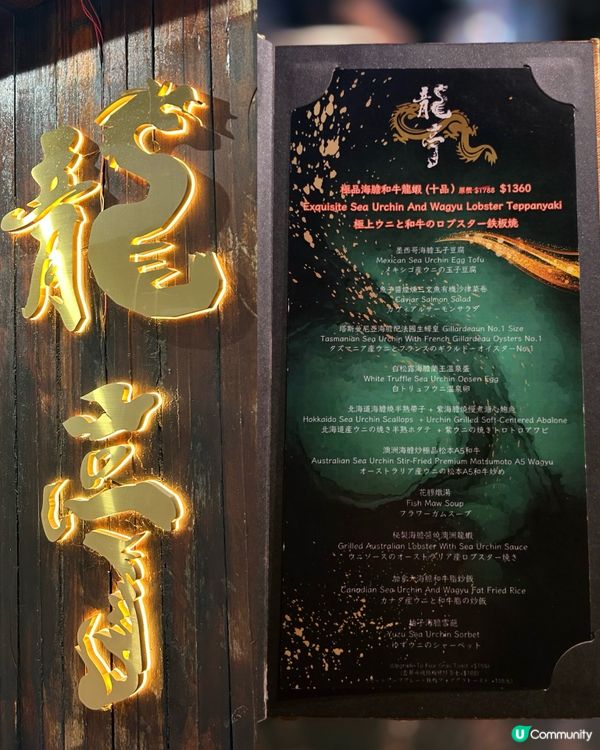 龍亭
龍亭
極品海膽和牛龍蝦 (十品) 原價 $1788 $1360
Exquisite Sea Urchin And Wagyu Lobster Teppanyaki
極上ウニと和牛のロブスター鉄板焼
墨西哥海膽玉子豆腐
Mexican Sea Urchin Egg Tofu
メキシコ産ウニの玉子豆腐
Caviar Salmon Salad
キャヴィアルサーモンサラダ
Gillardeaun No.1 Size
Tasmanian Sea Urchin With French Gillardeau Oysters No.1
タズマニア産ウニとフランスのギラルドーオイスターNo.1
白松露海膽蘭王溫泉蛋
White Truffle Sea Urchin Onsen Egg
白トリュフウニ温泉卵
北海道海膽燒半熟帶子 + 紫海膽燒慢煮溏心鮑魚
Hokkaido Sea Urchin Scallops + Urchin Grilled Soft-Centered Abalone
北海道産ウニの焼き半熟ホタテ + 紫ウニの焼きトロトロアワビ
澳洲海膽炒極品松本A5和牛
Australian Sea Urchin Stir-Fried Premium Matsumoto A5 Wagyu
オーストラリア産ウニの松本A5和牛炒め
花膠燉湯
Fish Maw Soup
フラワーカムスープ
秘製海膽醬燒澳洲龍蝦
Grilled Australian Lobster With Sea Urchin Sauce
ウニソースのオーストラリア産ロブスター焼き
加拿大海膽和牛脂炒飯
Canadian Sea Urchin And Wagyu Fat Fried Rice
カナダ産ウニと和牛脂の炒飯
柚子海膽雪葩
Yuzu Sea Urchin Sorbet
ゆずウニのシャーベット
U Community